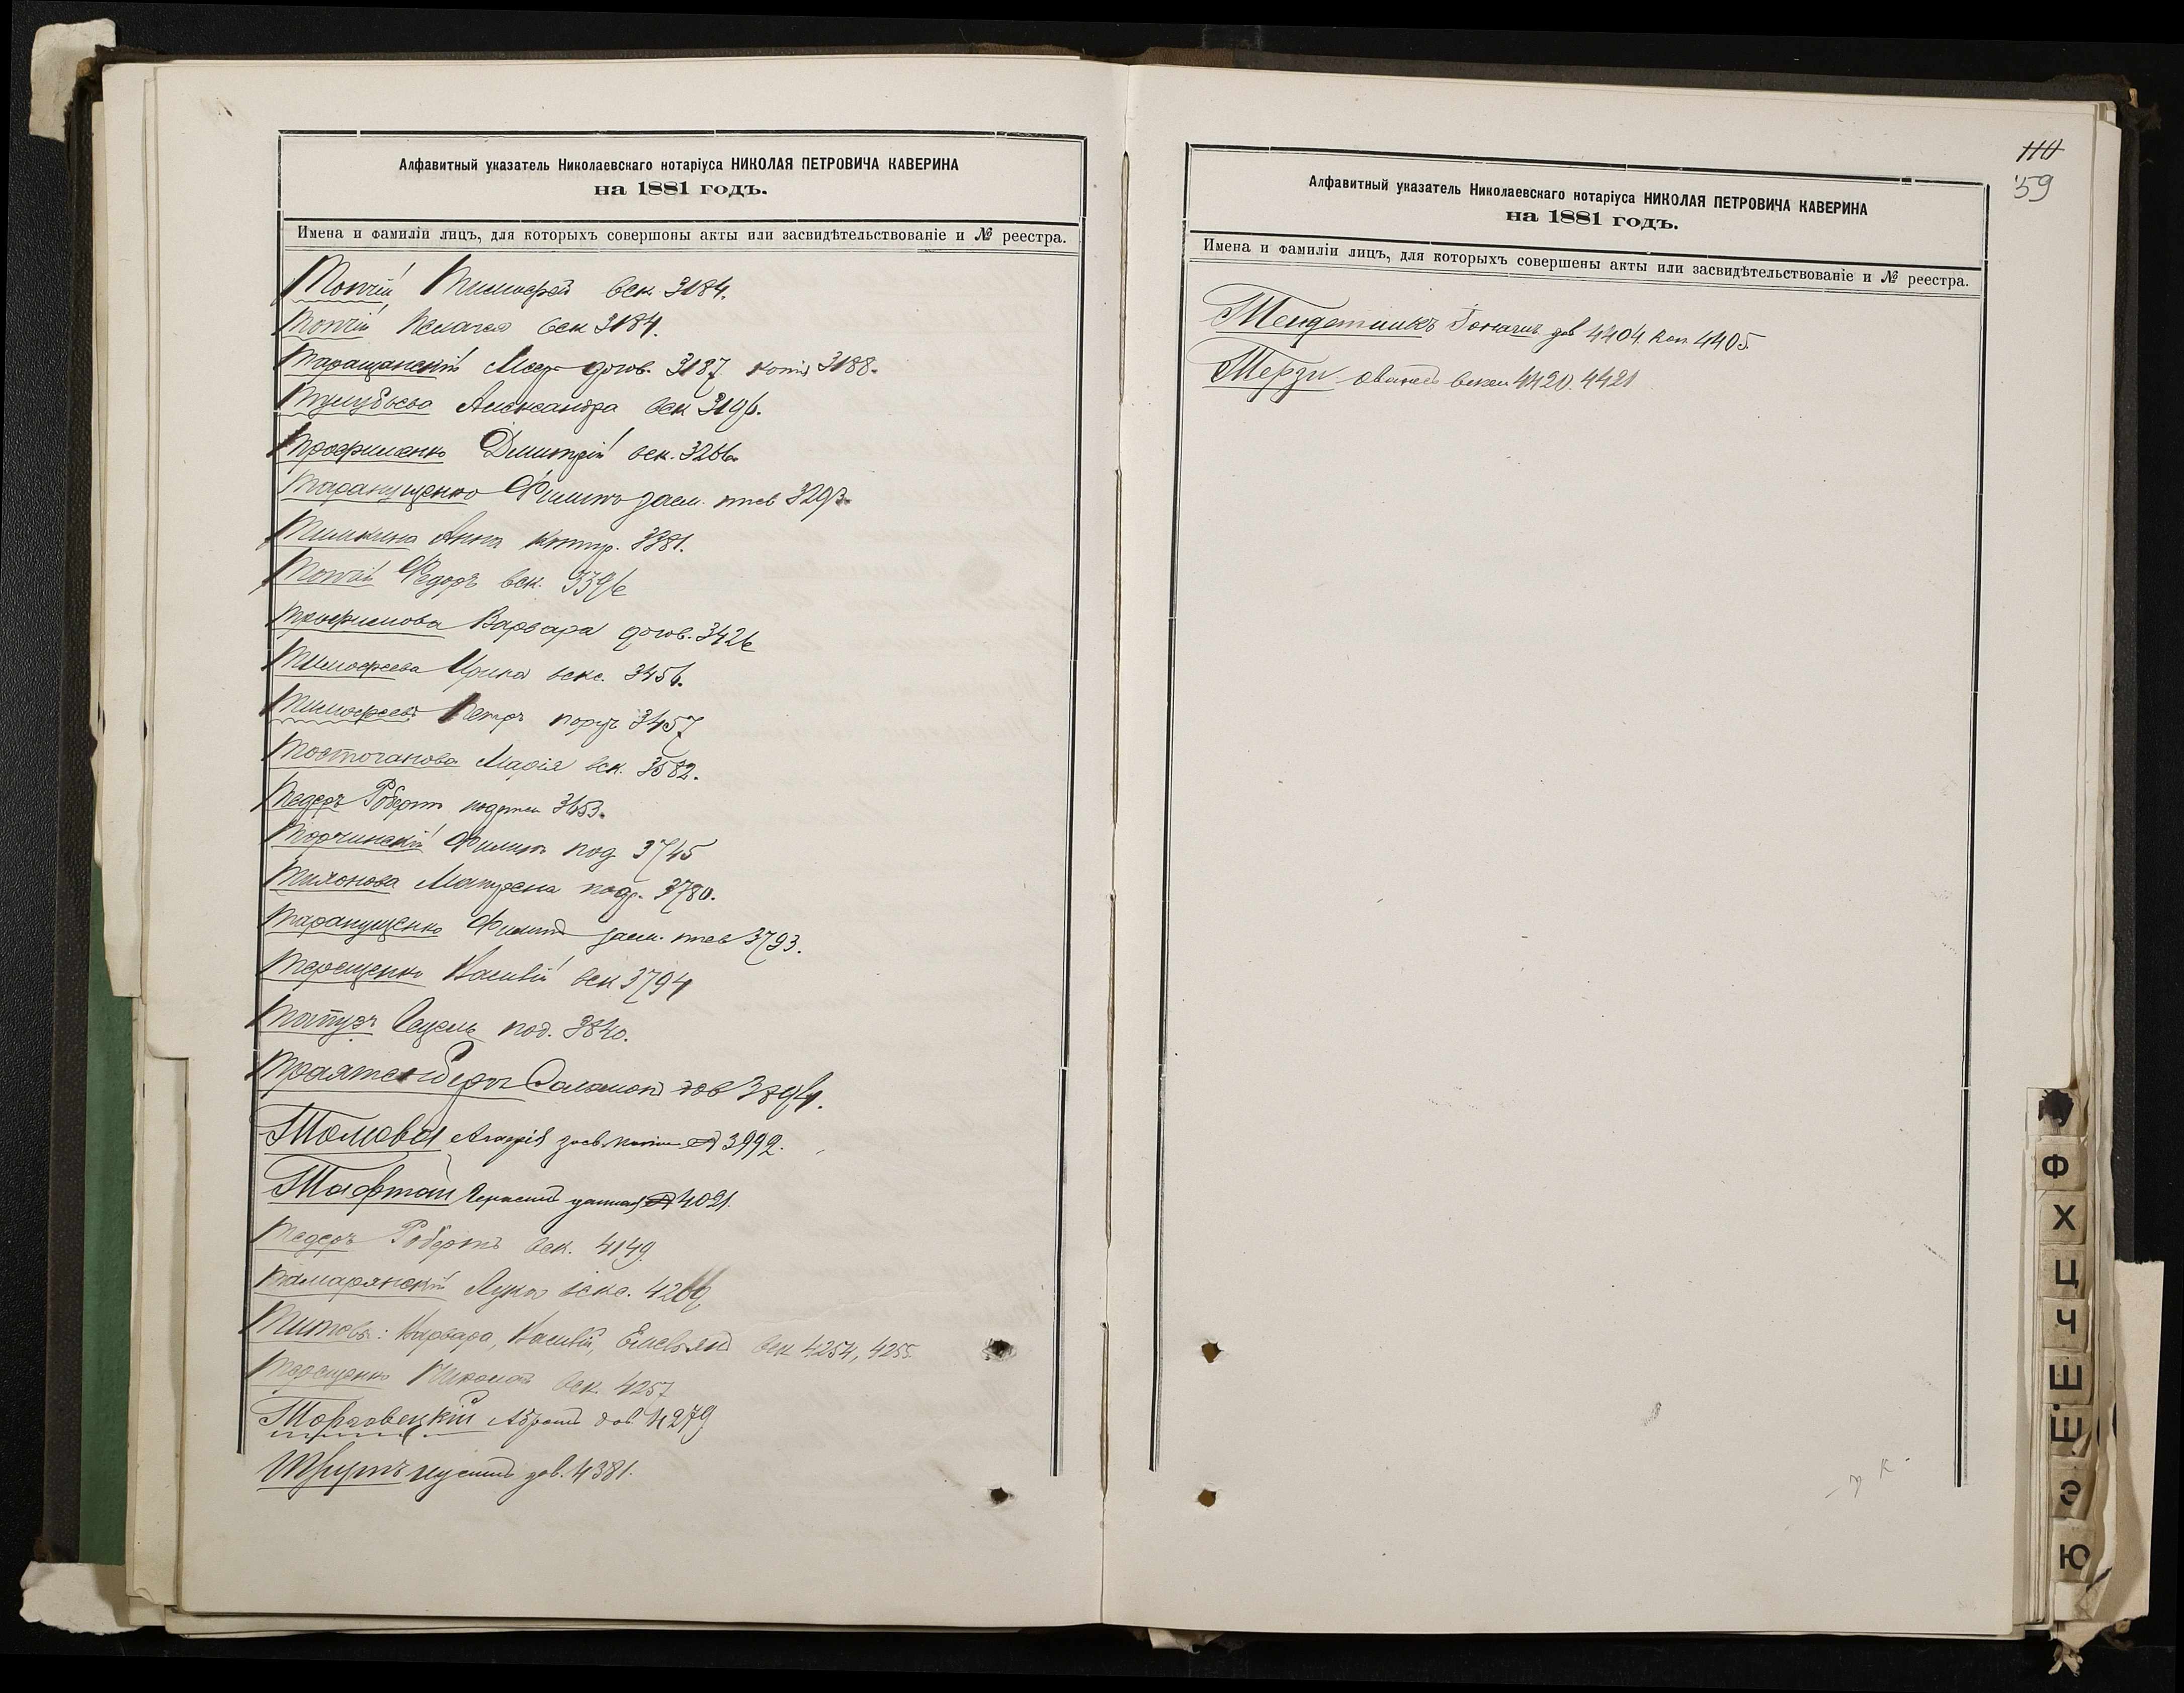 Алфавитный указатель Николаевскаго нотаріуса НИКОЛАЯ ПЕТРОВИЧА КАВЕРИНА
на 1881 годъ.
Имена и фамиліи лицъ, для которыхъ совершоны акты или засвидѣтельствованіе и № реестра.
Топчій Тимофей век 3184.
Топчій Пелагея век 3184.
Таращанскій догов. 3187 копія 3188.
Александра век 3196.
Трофименко Димитрій век. 3266.
Таранущенко Филиппъ засви. 3293.
Тишкина Анна контр. 3381.
Топчій Федоръ век. 3396
Трофимова Варвара догов. 3426
Тимофеева Ирина векс. 3456.
Тимофеевъ Петръ поруч 3457
Марія век. 3582.
Тедеръ Робертъ 3653.
Торчинскій Филиппъ под 3745
Тихонова Матрена подр. 3780.
Таранущенко Филиппъ засви. 3793.
Терещенко Василій век 3794
под. 3840.
Соломонъ дов
Томова засв. копія 3992.
4021.
Тедеръ Робертъ век. 4149.
Тамарянскій Лука векс.
Титовы: Варвара, Василій, Емельянъ век 4254, 4255.
Терещенко Николай век. 4257
Торговецкій Абрамъ дов. 4279
дов. 4381.
110
59
Алфавитный указатель Николаевскаго нотаріуса НИКОЛАЯ ПЕТРОВИЧА КАВЕРИНА
на 1881 годъ.
Имена и фамиліи лицъ, для которыхъ совершены акты или засвидѣтельствованіе и № реестра.
дов 4404. коп. 4405.
Терзи векс 4420. 4421
Ф
Х
Ц
Ч
Ш
Щ
Э
Ю